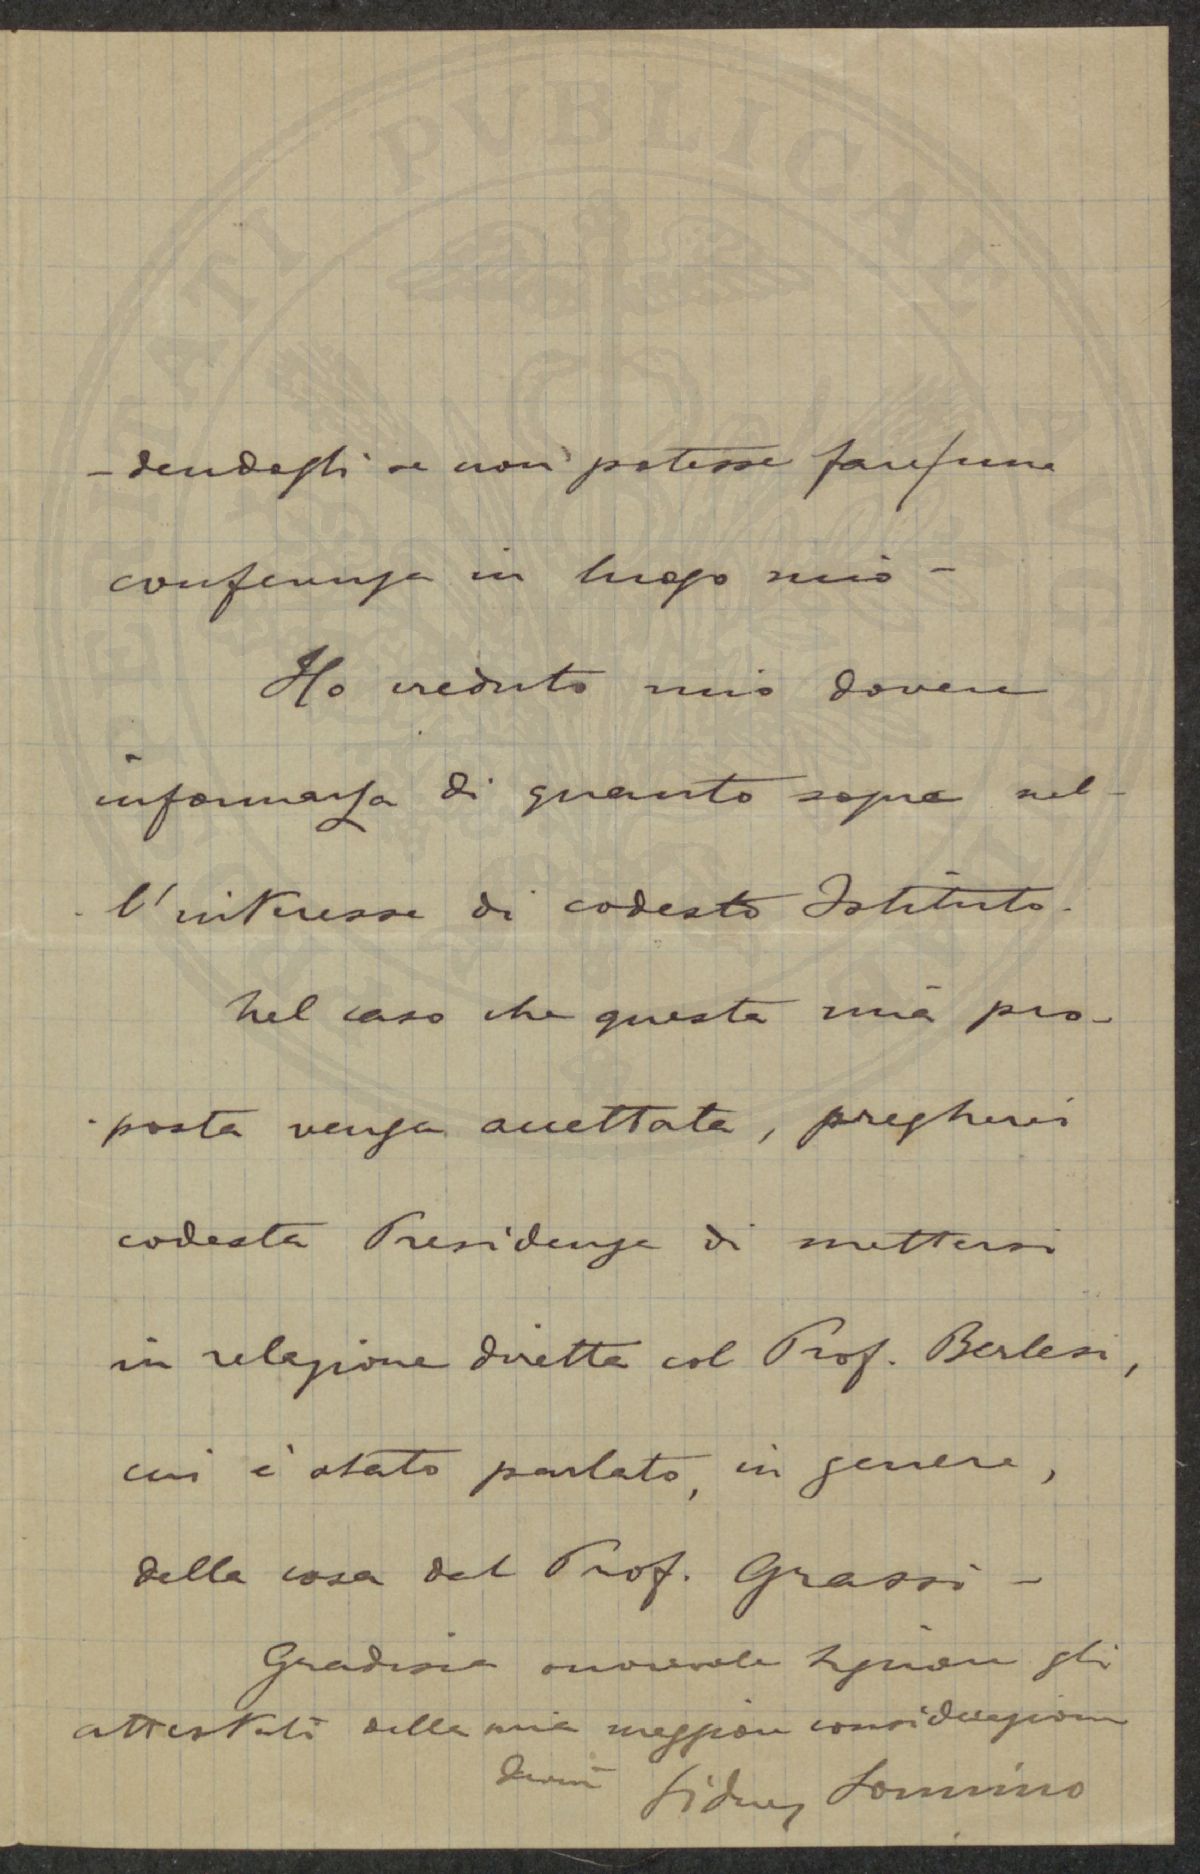 -dendogli se non potesse fare una
conferenza in luogo mio -
Ho creduto mio dovere
informarla di quanto sopra nel-
l'interesse di codesto Istituto.
Nel caso che questa mia pro-
posta venga accettata, pregherei
codesta Presidenza di mettersi
in relazione diretta col Prof. Berlesi,
cui è stato parlato, in genere,
della cosa dal Prof. Grassi -
Gradisca onorevole Signore gli
attestati della mia maggiore considerazione
Sidney Sonnino